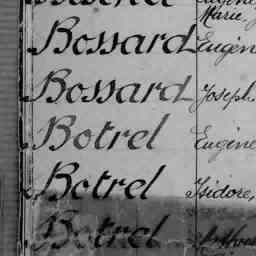 Marie
Bossard Eugèn
Bossard Joseph
Botrel Eugène
Botrel Isidore,
Botrel